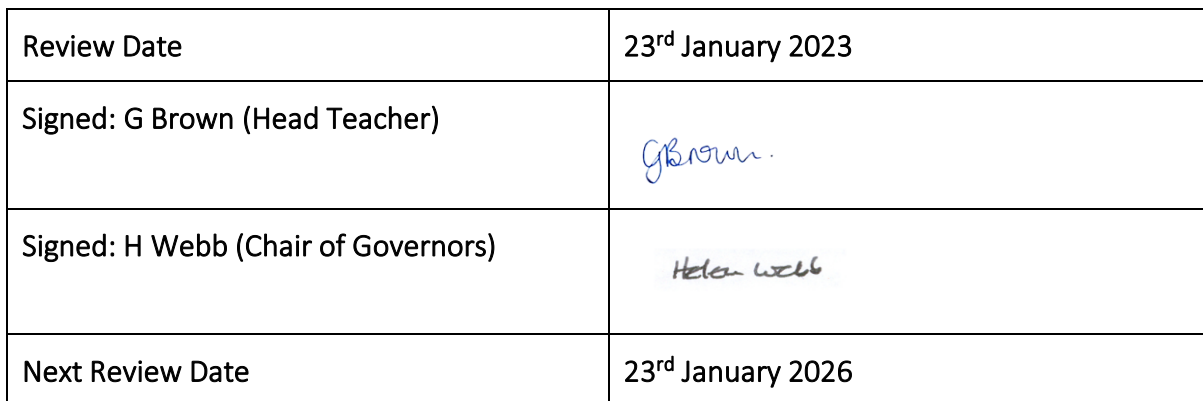 Review Date 23rd January 2023
Signed: G Brown (Head Teacher) GBrown.
Signed: H Webb (Chair of Governors) Helen Webb
Next Review Date 23rd January 2026